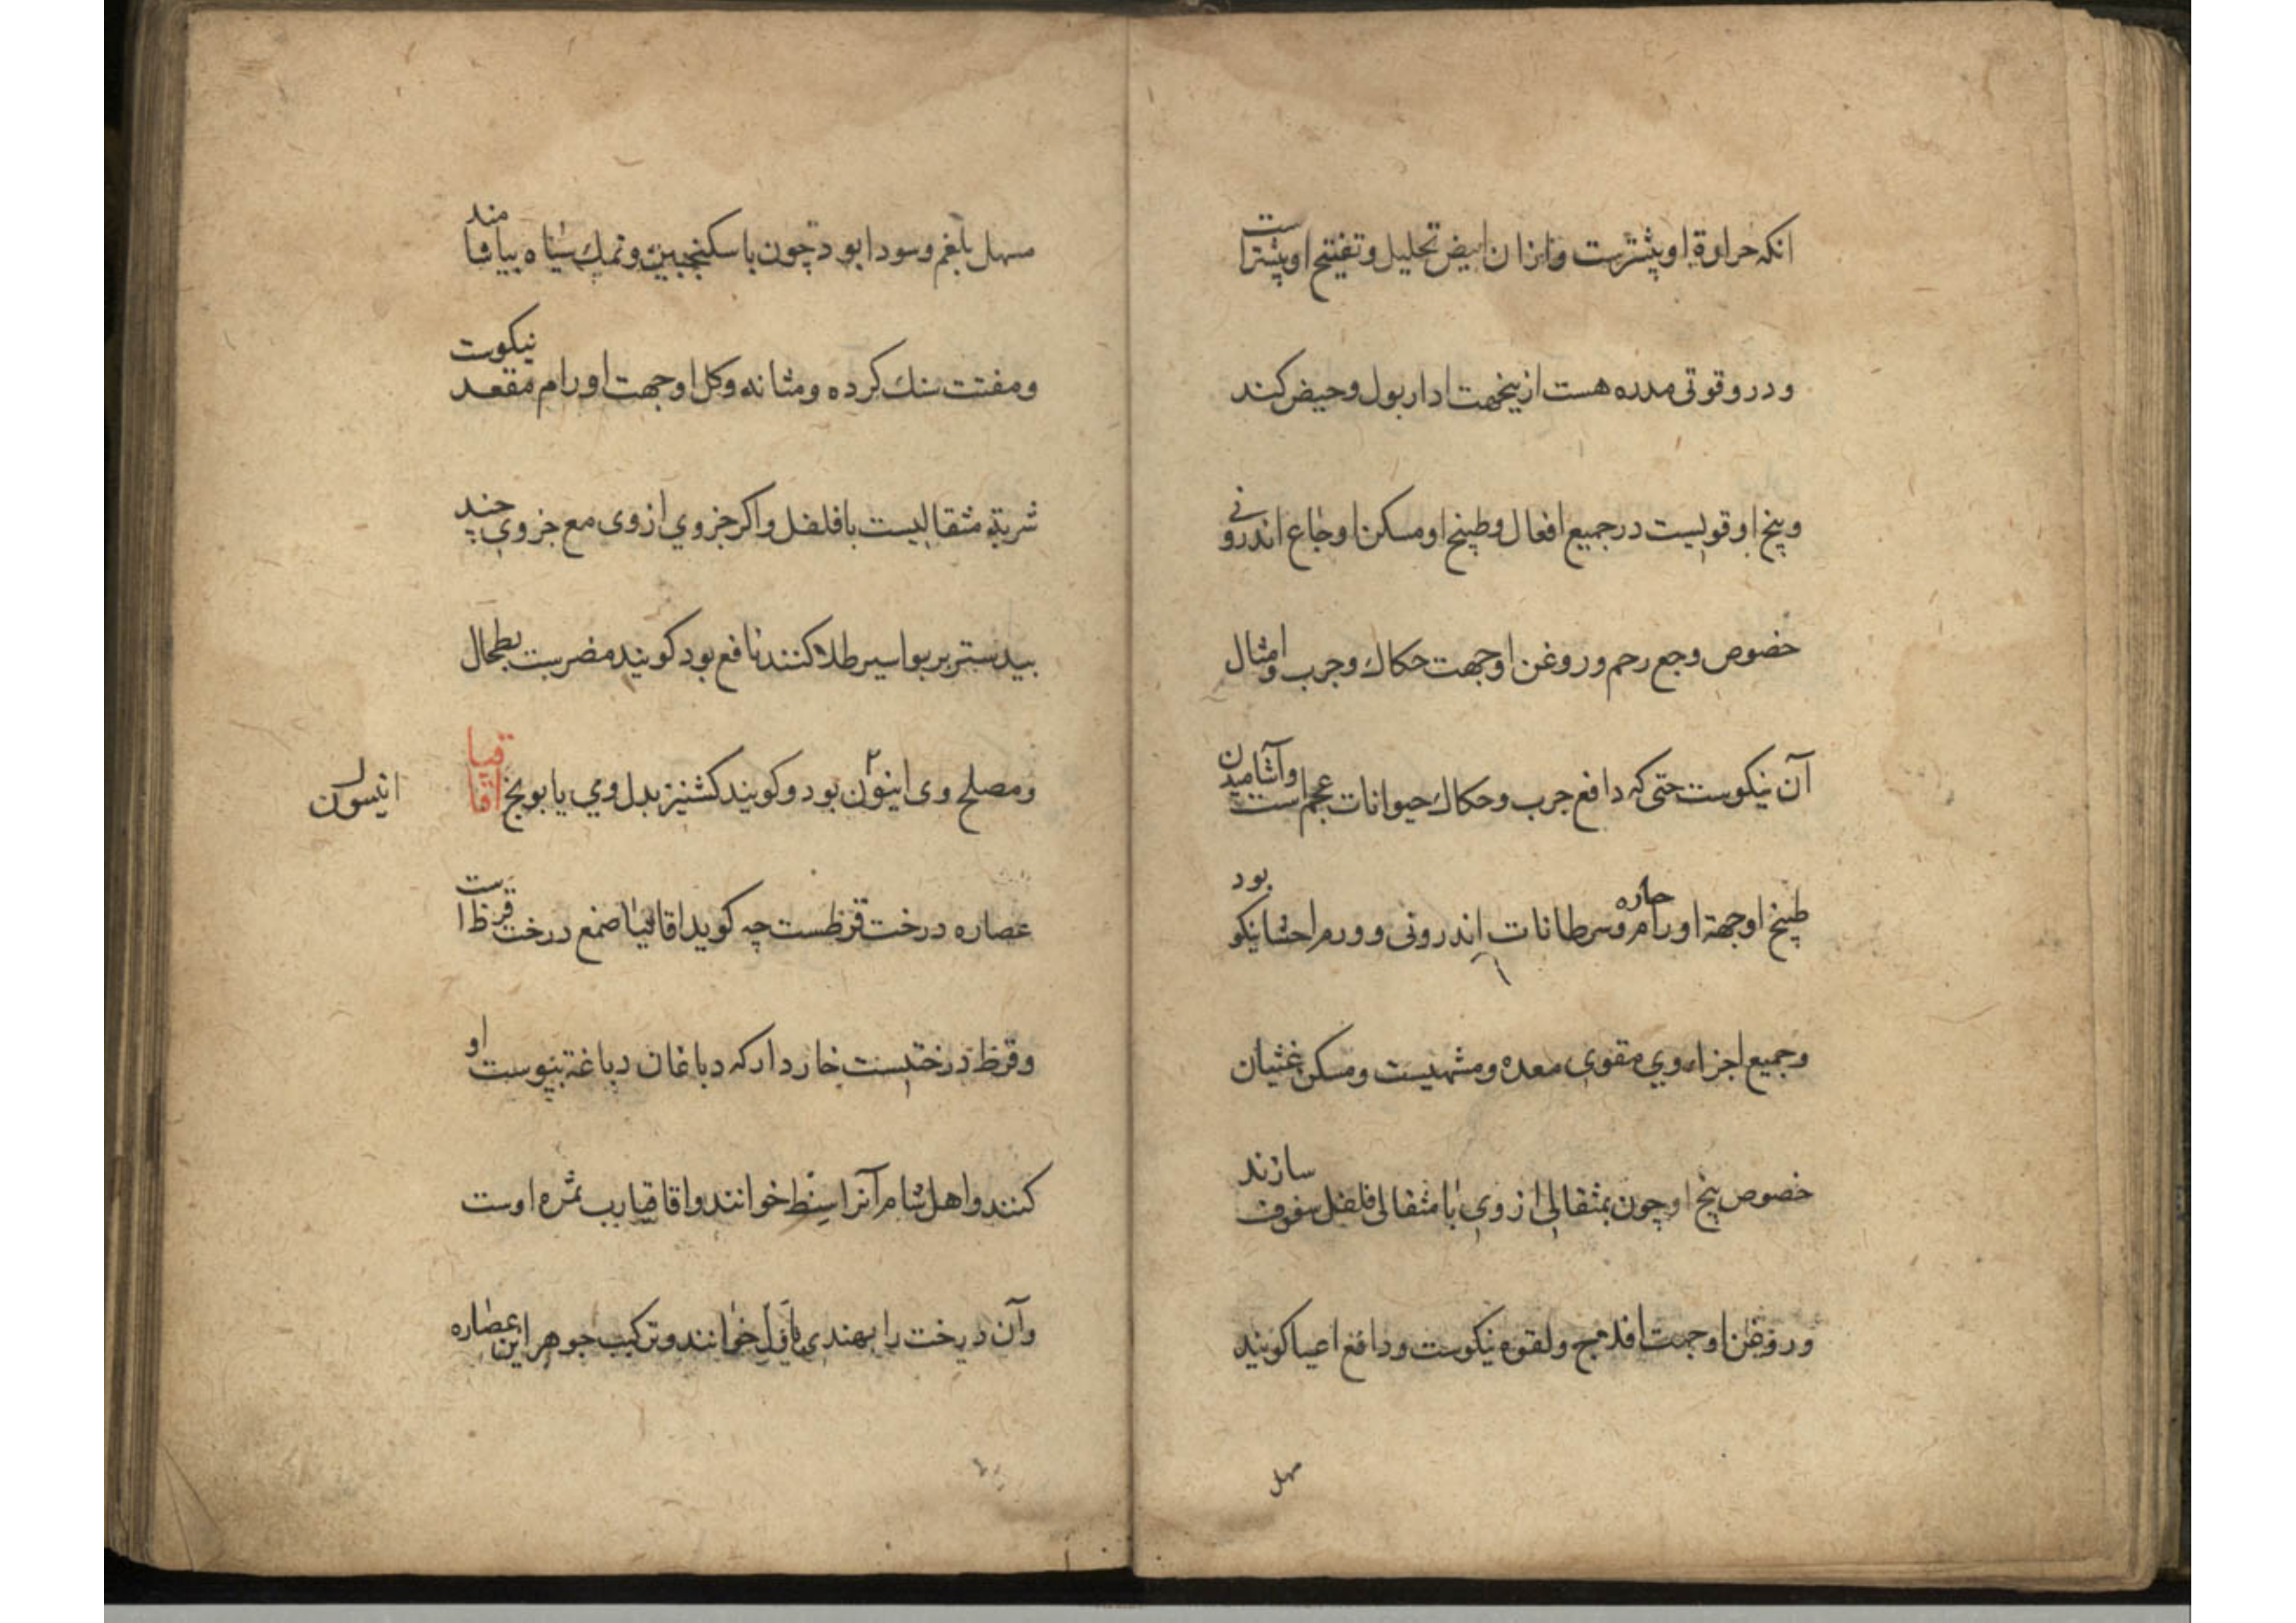 انكه حراوة او پیشترست وازان ابیض تحلیل وتفتیح او پیشتراست
ودرو قوتی مدره هست ازینجهت ادار بول وحیض کند
وبیخ او قویست درجمیع افعال وطبیخ او مسکن اوجاع اندرونی
خصوص وجع رحم وروغن اوجهت حکاك وجرب وامثال
آن نیکوست حتی که دافع جرب وحکاك حیوانات عجم است وآشامیدن
طبیخ اوجهة اورام حاره وسرطانات اندرونی وورم احشا نیکو بود
وجمیع اجزاء وی مقوی معده ومشهیست ومسکن غثیان
خصوص بیخ او چون بمثقالی از وی با مثقالی فلفل سفوف سازند
وروغن اوجهت افلاج ولقوه نیکوست ودافع اعیا کویند
مهل
مسهل بلغم وسودا بود چون با سکنجبین ونمك سیاه بیاشامند
ومفتت سنك کرده ومثانه وکل اوجهت اورام مقعد نیکوست
شربتی مثقالیست بافلفل واکر جزوی از وی مع جزوی چند
بیدستر بر بواسیر طلا کنند نافع بود کویند مضرست بطحال
ومصلح وی انیون بود وکویند کشنیز بدل وی یا بونج اقاقیا
انیسون
عصاره درخت قرظست چه کوید اقاقیا صمغ درخت قرظ است
وقرظ درختیست خاردار که دباغان دباغة بپوست او
کنند واهل شام آنرا سنط خوانند واقاقیا رب ثمره اوست
وآن درخت را بهندی خوانند وترکیب جوهر این عصاره